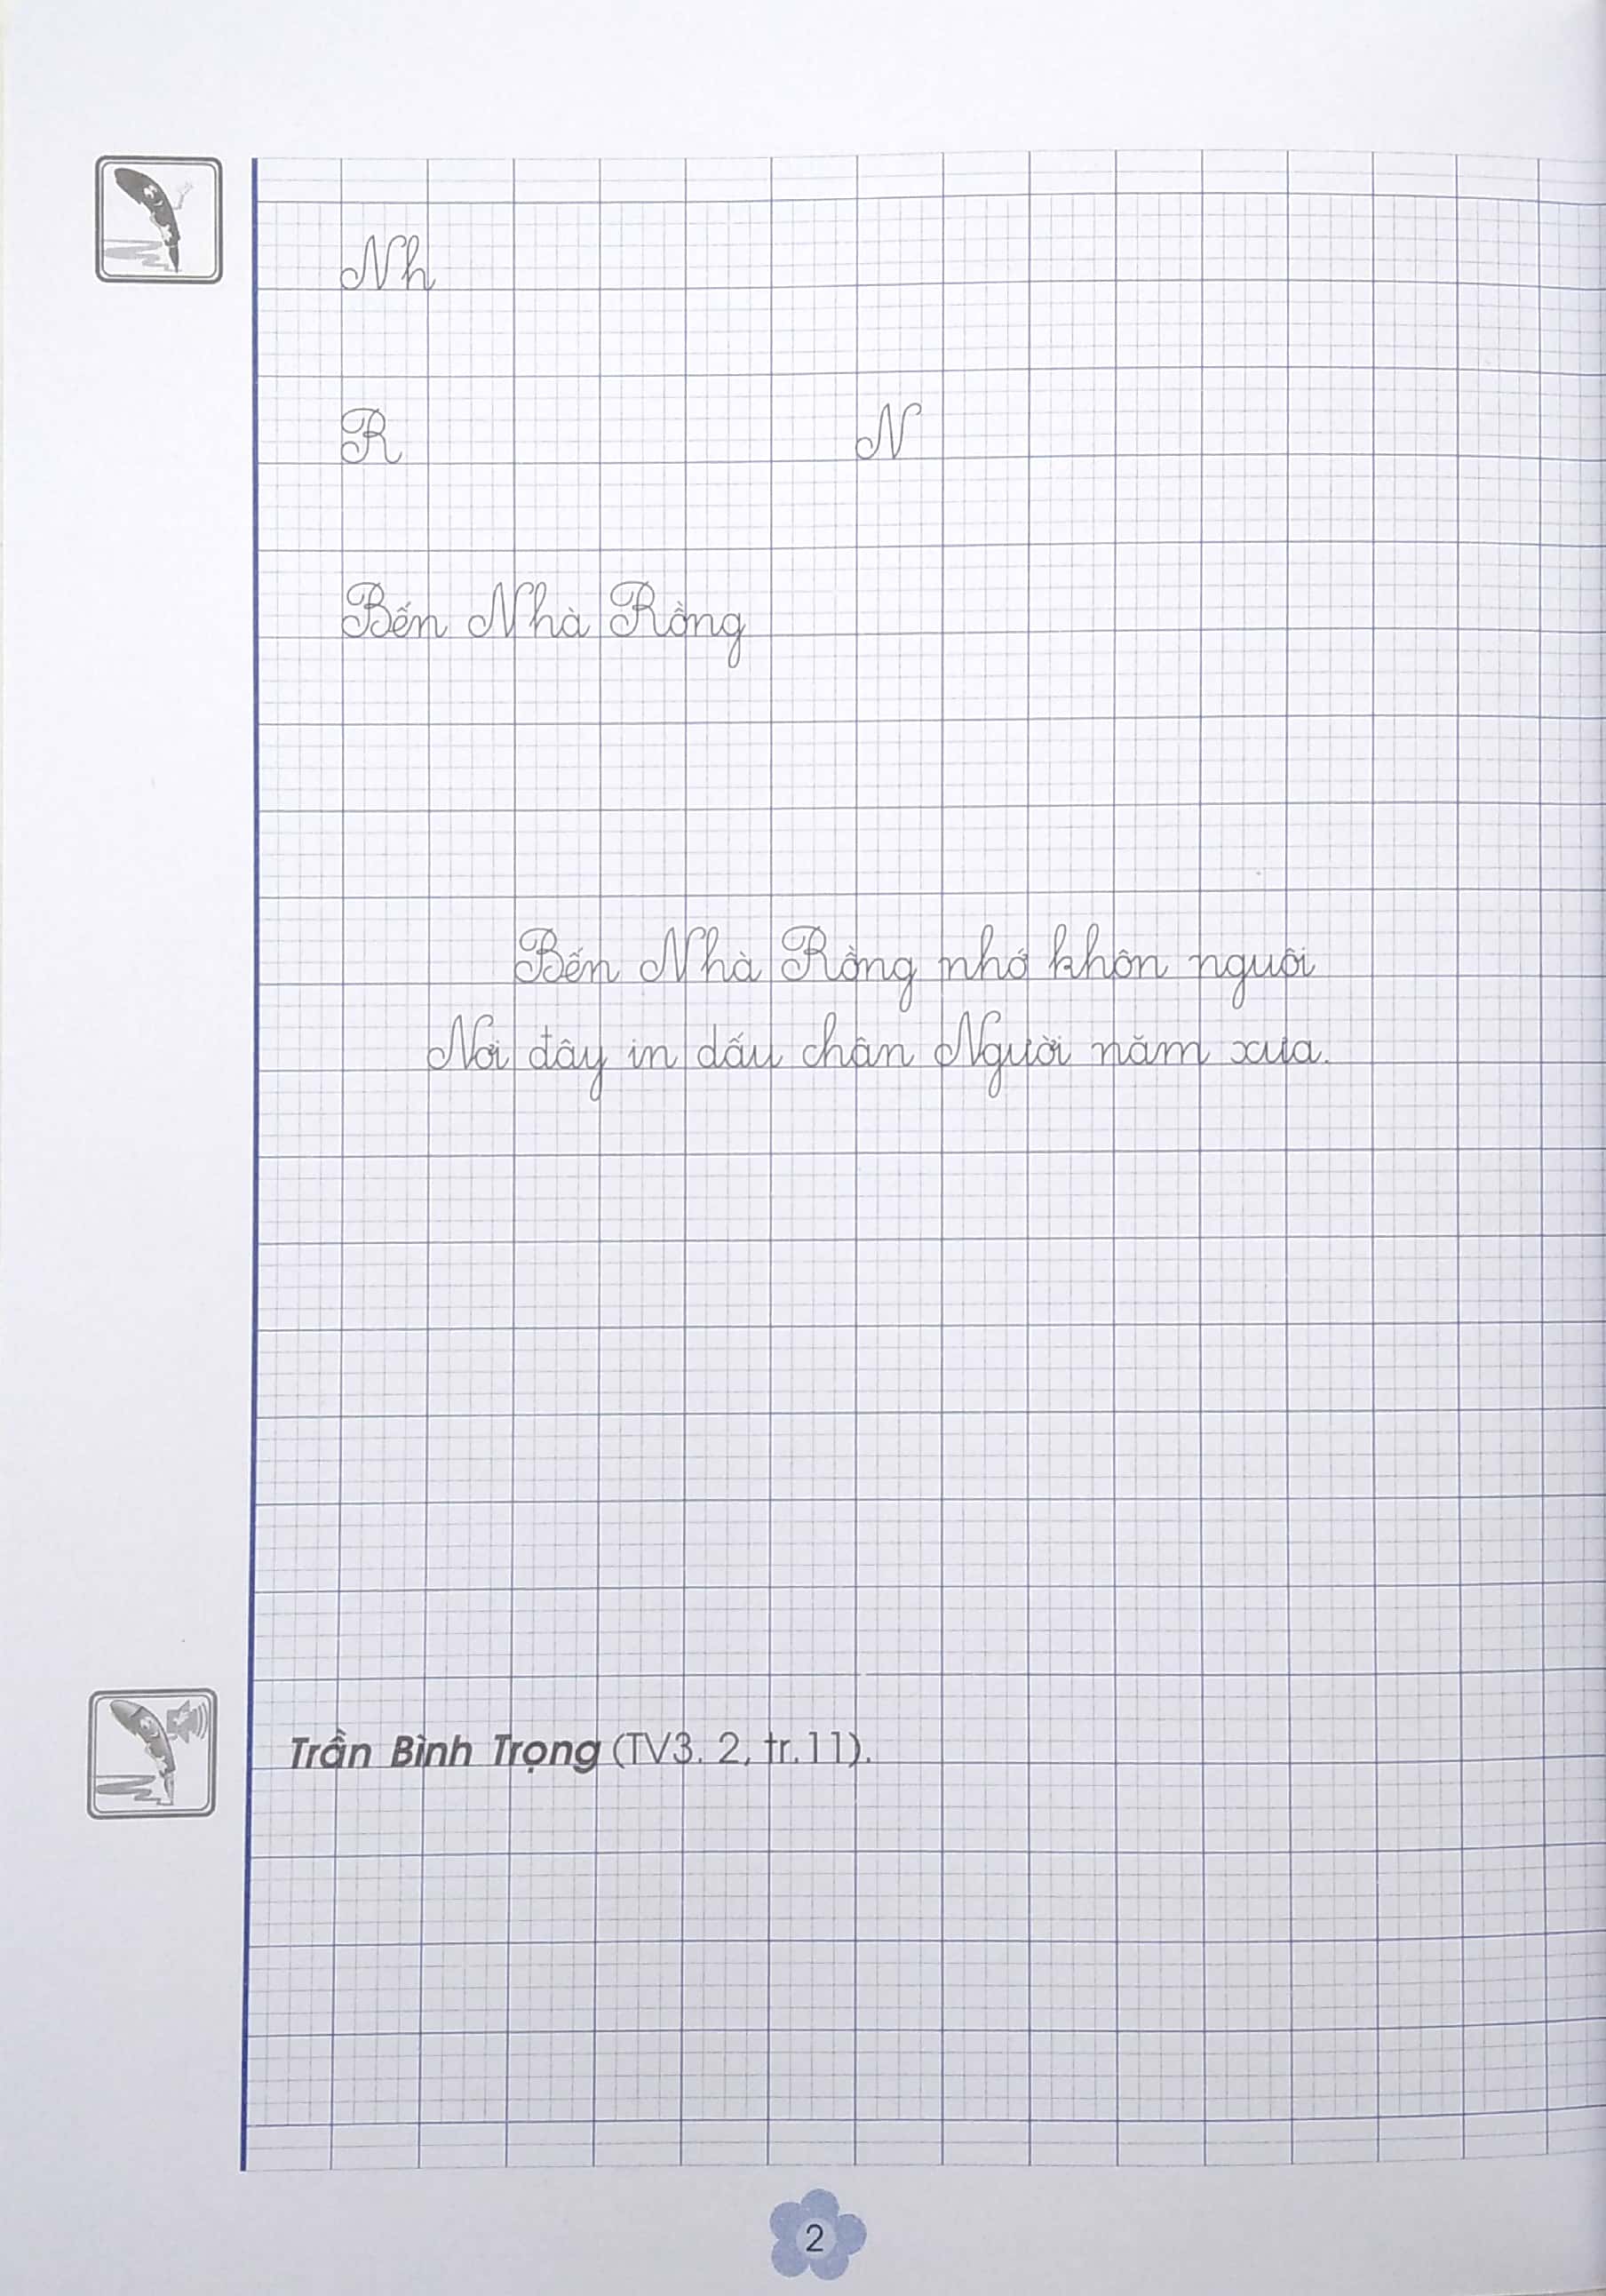 Nh
R N
Bến Nhà Rồng
Bến Nhà Rồng nhớ khôn nguôi
Nơi đây in dấu chân Người năm xưa.
Trần Bình Trọng (TV3. 2, tr.11).
2